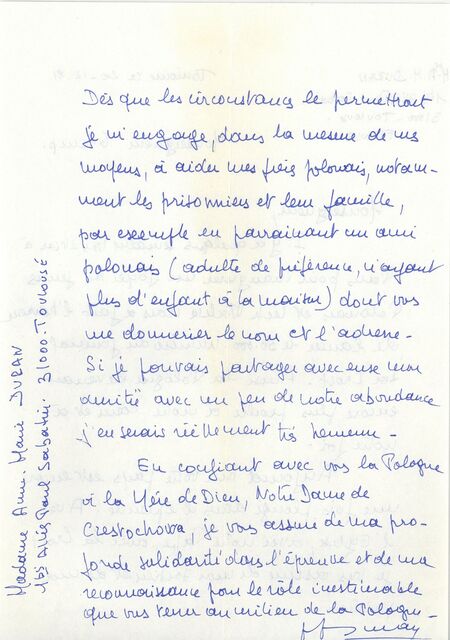 Dès que les circonstances le permettront
je m'engage, dans la mesure de mes
moyens, à aider mes frères polonais, notam-
ment les prisonniers et leur famille,
par exemple en parrainant un ami
polonais (adulte de préférence, n'ayant
plus d'enfant à la maison) dont vous
me donneriez le nom et l'adresse.
Si je pouvais partager avec eux mon
amitié avec un peu de notre abondance
j'en serais réellement très heureuse.
En confiant avec vous la Pologne
à la Mère de Dieu, Notre Dame de
Czestochowa je vous assure de ma pro-
fonde solidarité dans l'épreuve et de ma
reconnaissance pour le rôle inestimable
que vous tenez au milieu de la Pologne.
Madame Anne-Marie DURAN
Paul Sabatier 31000-Toulouse